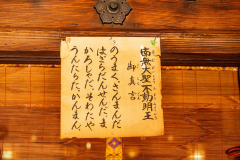 南無大聖不動明王
御真言
のうまく、さんまんだ
ばざらだんせんだ、ま
かろしゃだ、そわたや
うんたらた、かんまん、